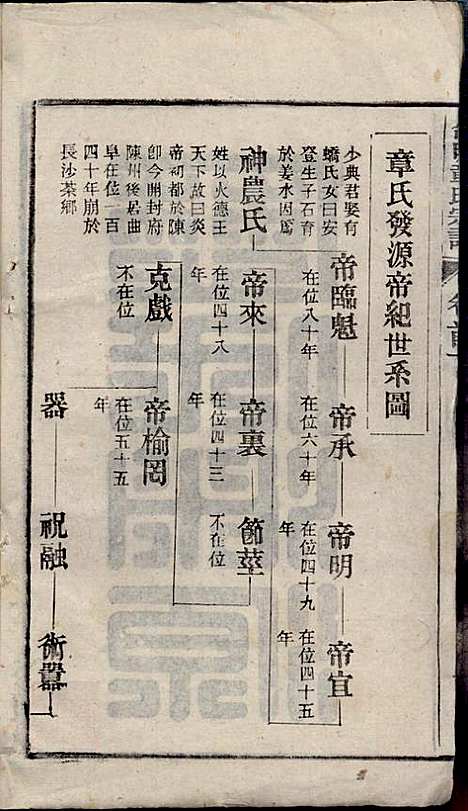 章氏發源帝紀世系圖
少典君娶有
蟜氏女曰安
登生子石育
於姜水因爲
神農氏
姓以火德王
天下故曰炎
帝初都於陳
卽今開封府
陳州後居曲
阜在位一百
四十年崩於
長沙茶鄉
帝臨魁
在位八十年
帝承
在位六十年
帝明
在位四十九
年
帝宜
在位四十五
年
帝來
在位四十八
年
帝裏
在位四十三
年
節莖
不在位
克戲
不在位
帝榆罔
在位五十五
年
器
祝融
術嚣